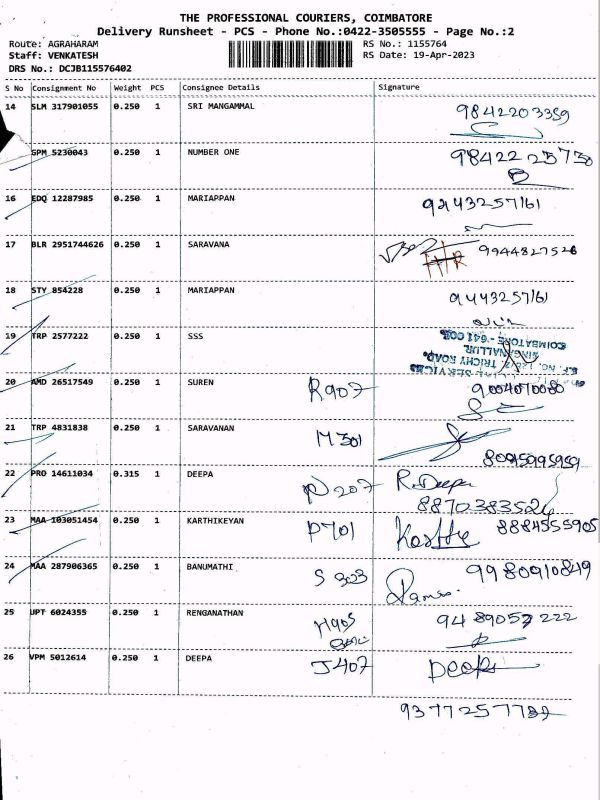 THE PROFESSIONAL COURIERS, COIMBATORE
Delivery Runsheet - PCS - Phone No.:0422-3505555 - Page No.:2
Route: AGRAHARAM RS No.: 1155764
Staff: VENKATESH RS Date: 19-Apr-2023
DRS No.: DCJB115576402
S No Consignment No Weight PCS Consignee Details Signature
14 SLM 317901055 0.250 1 SRI MANGAMMAL 9842203359
SPM 5230043 0.250 1 NUMBER ONE 9842225730
16 EDQ 12287985 0.250 1 MARIAPPAN 9443257161
17 BLR 2951744626 0.250 1 SARAVANA 9944827526
18 STY 854228 0.250 1 MARIAPPAN 9443257161
19 TRP 2577222 0.250 1 SSS
COIMBATORE - 641 005.
SINGANALLUR,
TRICHY ROAD,
20 AMD 26517549 0.250 1 SUREN R907 9004070080
21 TRP 4831838 0.250 1 SARAVANAN M301
8095995959
22 PRO 14611034 0.315 1 DEEPA N207 R. Deepa
8870383526
23 MAA 103051454 0.250 1 KARTHIKEYAN P701 8884555905
24 MAA 287906365 0.250 1 BANUMATHI S 303 9980910849
25 UPT 6024355 0.250 1 RENGANATHAN H905 9489057222
26 VPM 5012614 0.250 1 DEEPA J407 Deepa
9377257782